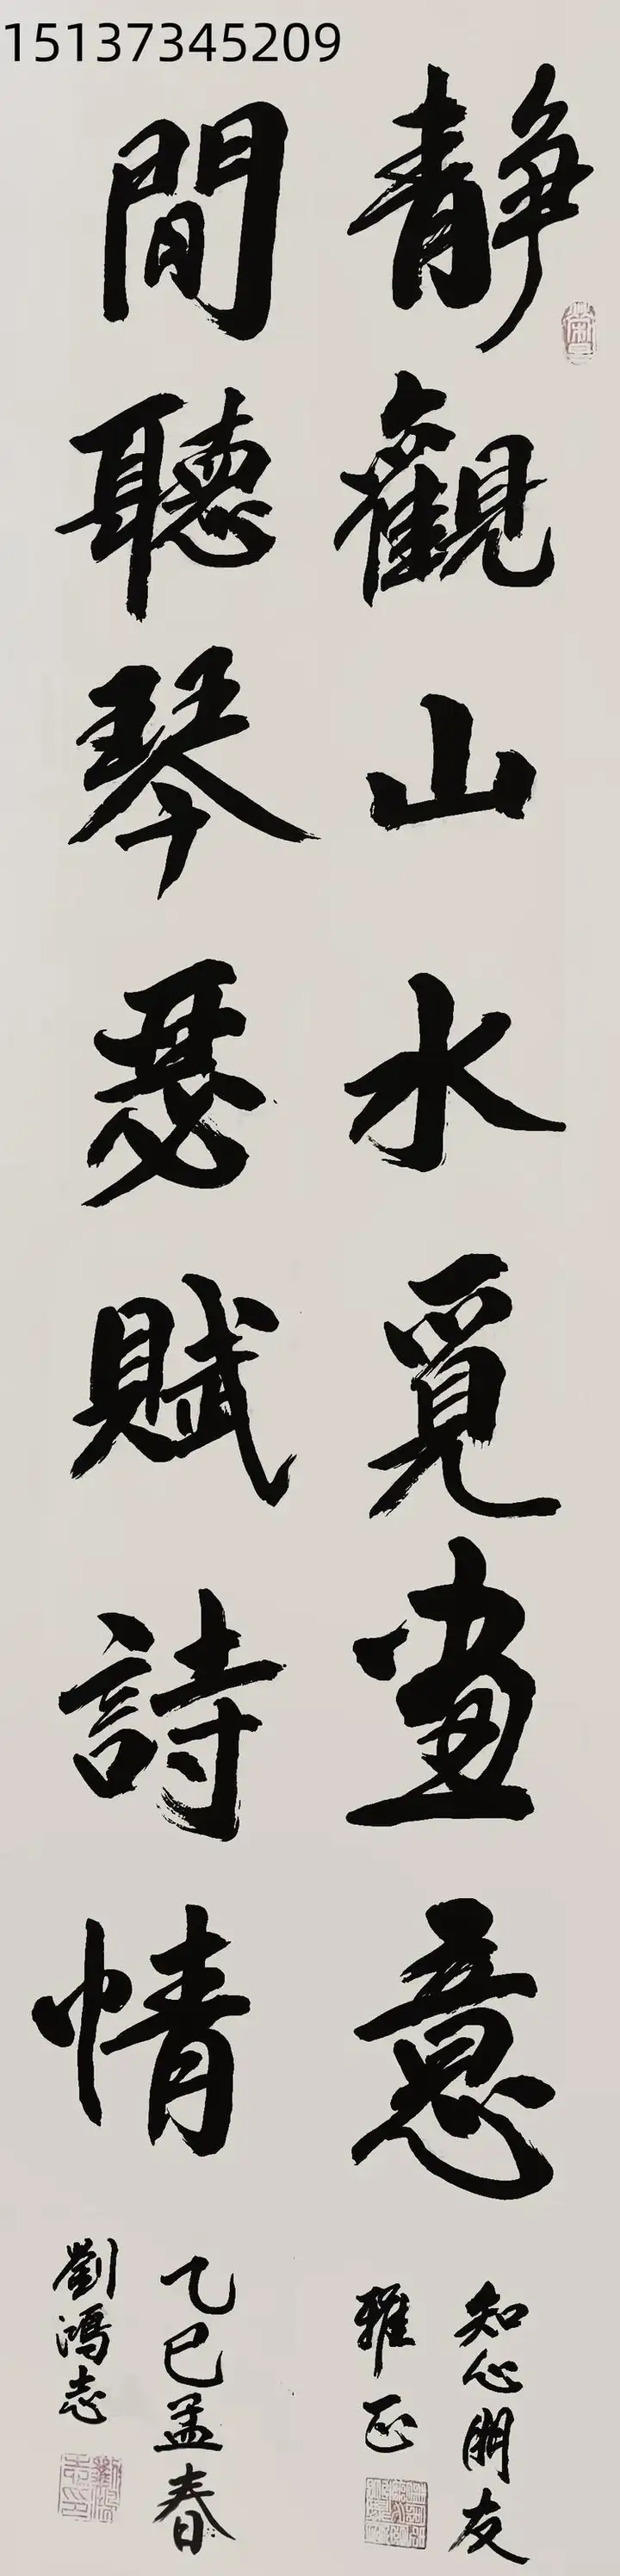 15137345209
静觀山水覓畫意
知心朋友
雅正
間聽琴瑟賦詩情
乙巳孟春
劉鴻志